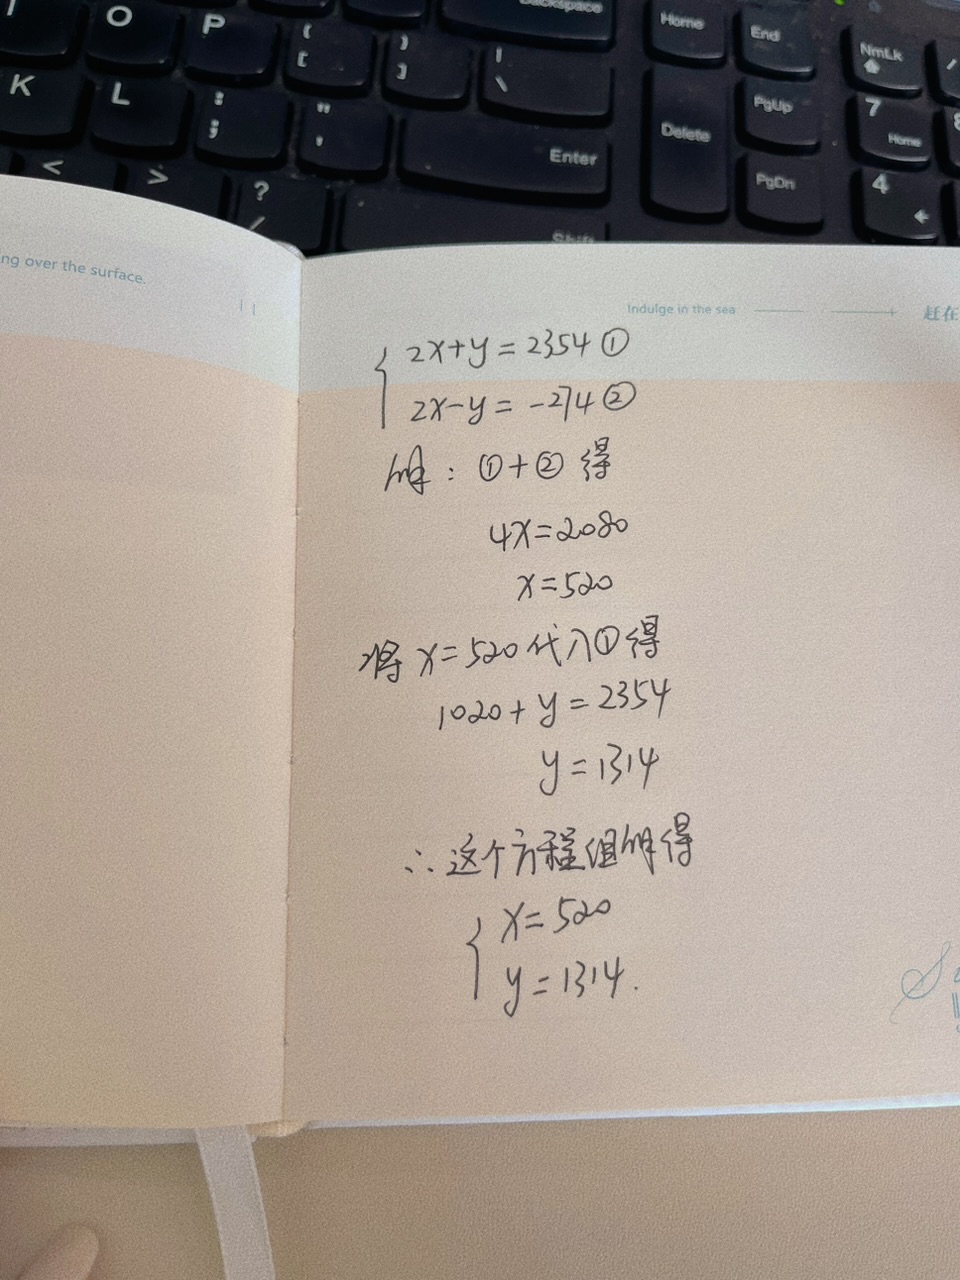 O
P
{
[
}
]
|
\
Backspace
Home
End
NmLk
K
L
:
;
"
'
Enter
Delete
PgUp
PgDn
7
Home
4
<
>
?
/
Shift
ng over the surface.
Indulge in the sea
赶在
2x+y=2354①
2x-y=-274②
解：①+②得
4x=2080
x=520
将x=520代入①得
1020+y=2354
y=1314
∴这个方程组解得
x=520
y=1314.